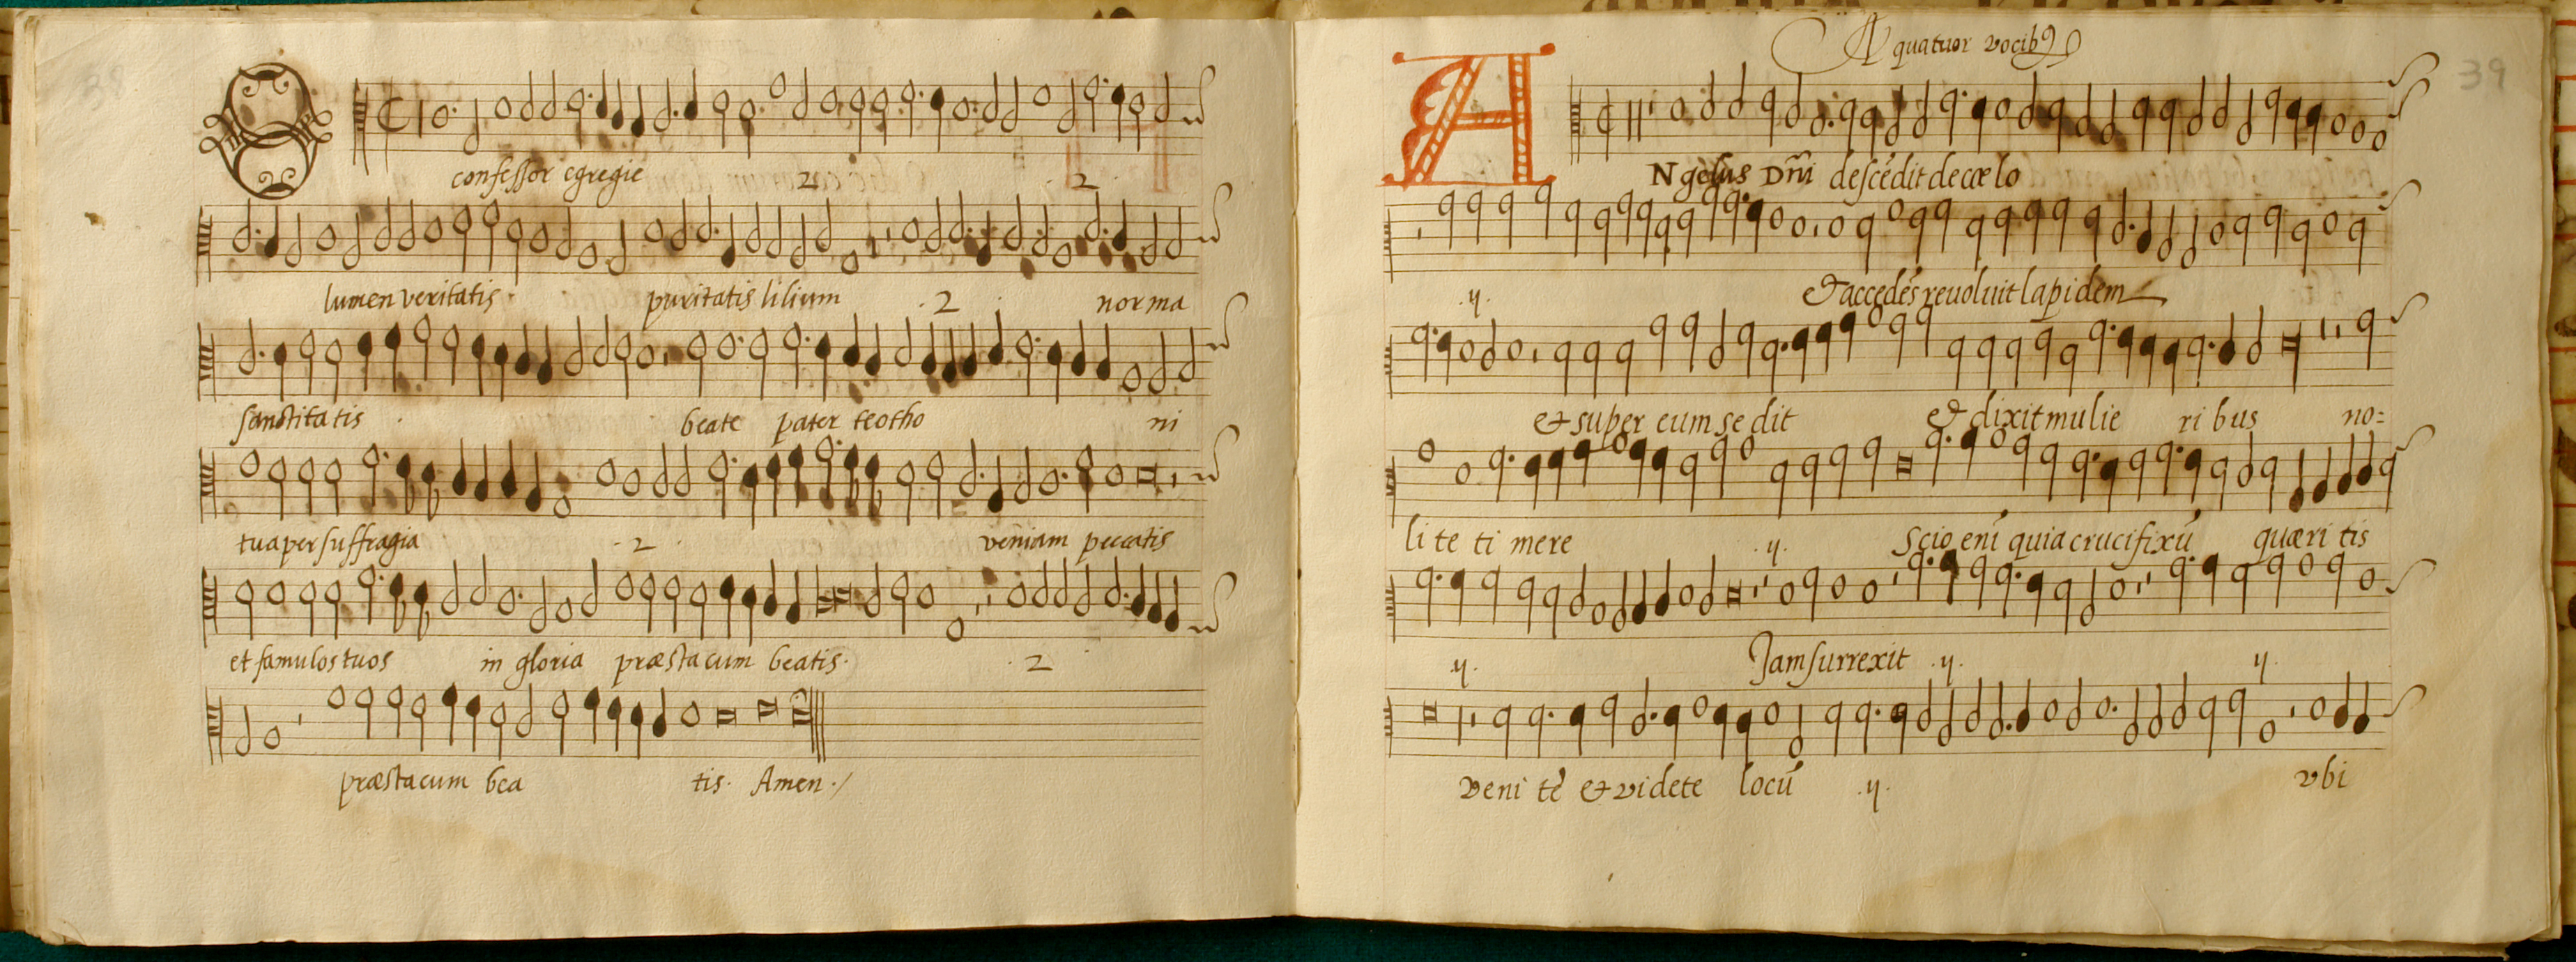 O confessor egregie 2 2
lumen veritatis · puritatis lilium · 2 · norma
sanctitatis · beate pater teotho ni
tua per suffragia · 2 · veniam peccatis
et famulos tuos in gloria præsta cum beatis · · 2 ·
præsta cum bea tis · Amen ·/
39
A quatuor vocibꝯ
ANgelus Dñi descēdit de cœlo
·ij· Et accedēs reuoluit lapidem
& super eum se dit & dixit mulie ri bus no=
li te ti mere ·ij· Scio enī quia crucifixū quæri tis
·ij· Jam surrexit ·ij· ij·
veni te & videte locū ·ij· vbi